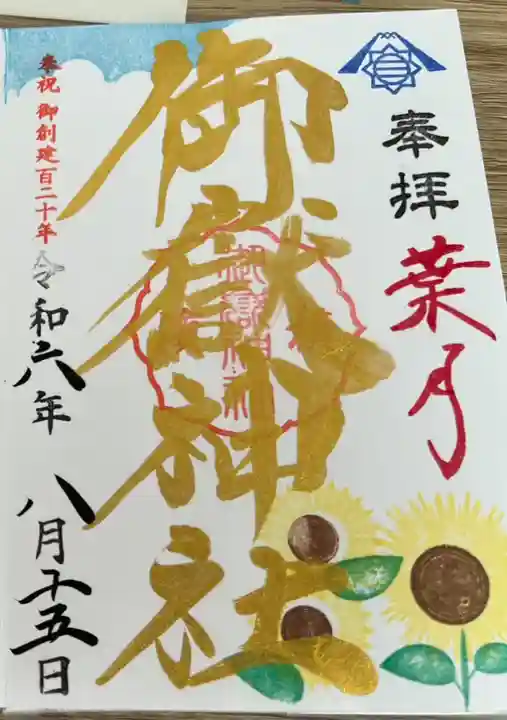 奉拝
葉月
御嶽神社
御嶽神社
奉祝 御創建百二十年
令和六年 八月十五日